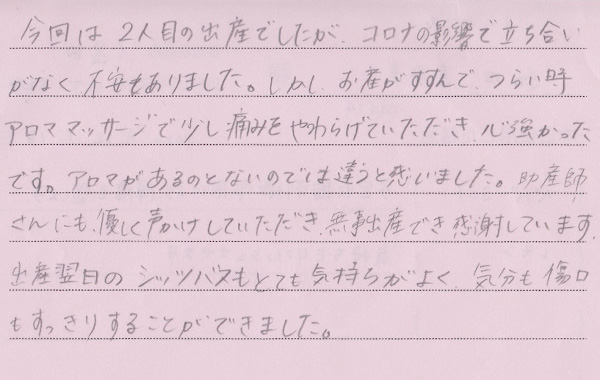 今回は2人目の出産でしたが、コロナの影響で立ち合い
がなく不安もありました。しかし、お産がすすんで、つらい時
アロママッサージで少し痛みをやわらげていただき、心強かった
です。アロマがあるのとないのでは違うと感いました。助産師
さんにも、優しく声かけしていただき、無事出産でき感謝しています。
出産翌日のシッツバスもとても気持ちがよく、気分も傷口
もすっきりすることができました。